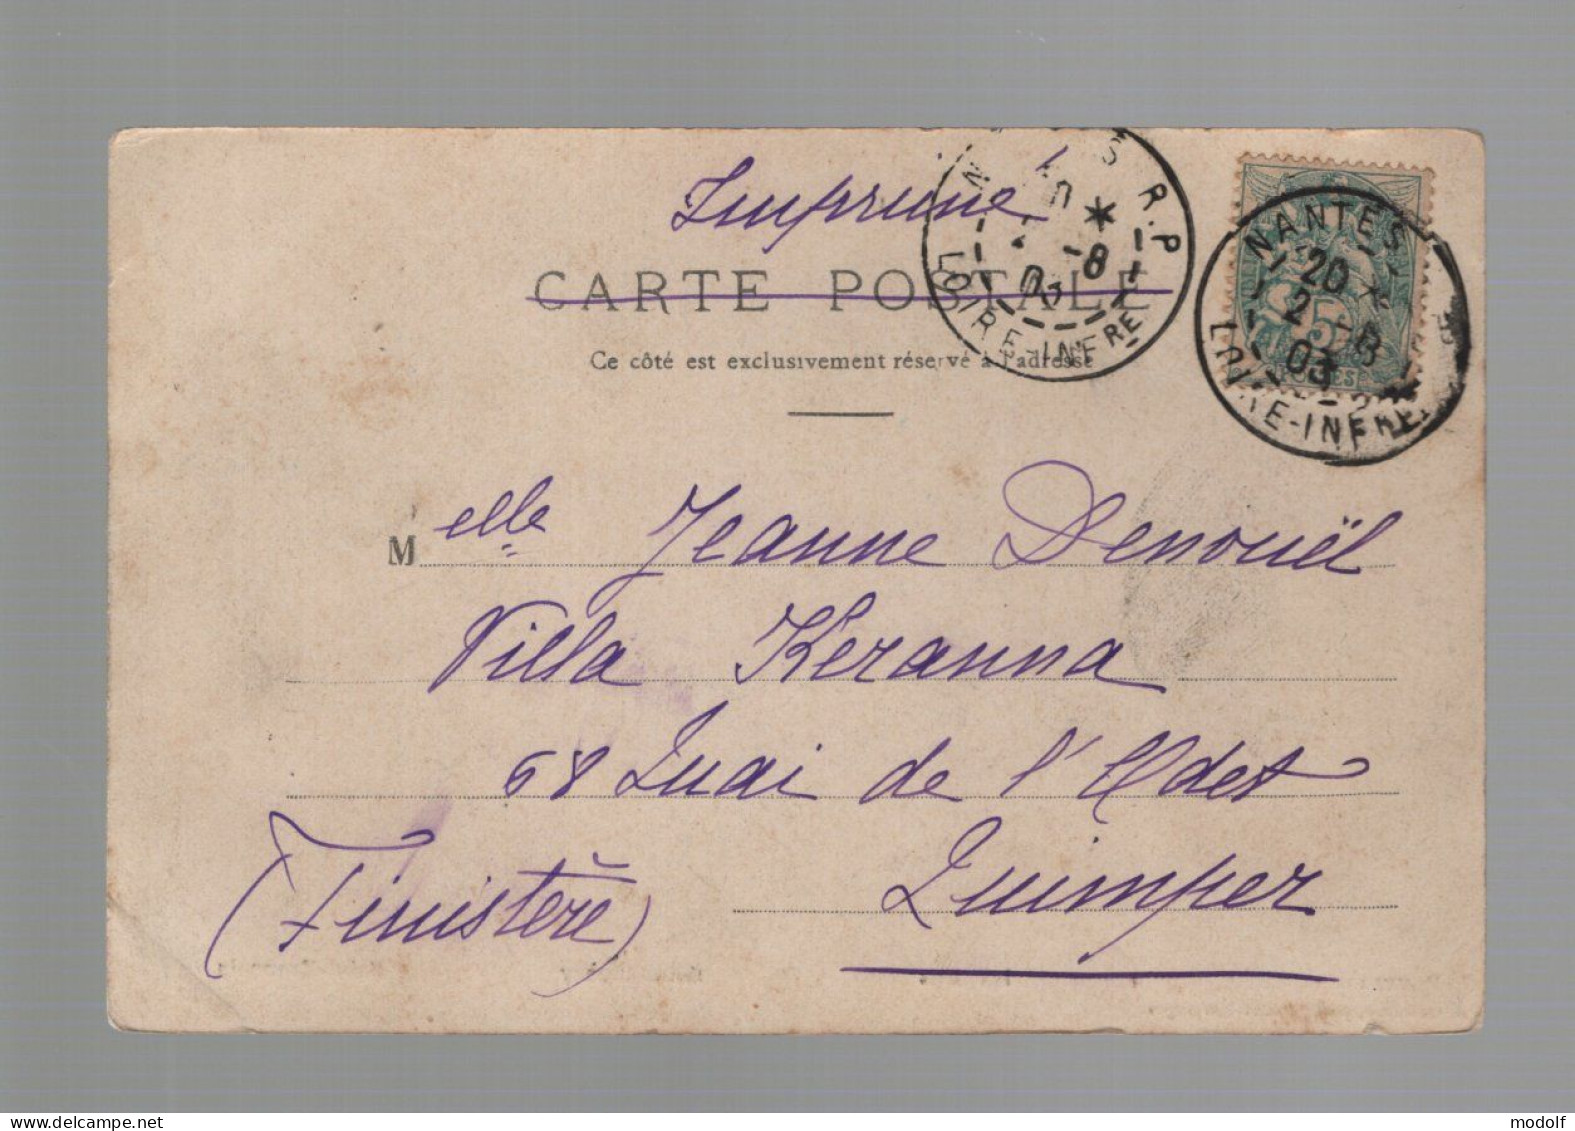 Imprimé
CARTE POSTALE
Ce côté est exclusivement réservé à l'adresse
NANTES R.P
20 *
2 -8
03
LOIRE-INFRE
NANTES
20 *
2 -8
03
LOIRE-INFRE
5
Melle Jeanne Denouël
Villa Keranna
68 Quai de l'Odet
Quimper
(Finistère)
www.delcampe.net
modolf